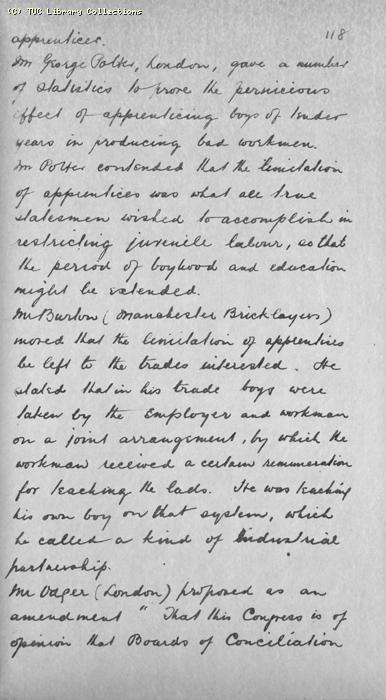 (C) TUC Library Collections
118
apprentices.
Mr George Potter, London, gave a number
of statistics to prove the pernicious
effect of apprenticing boys of tender
years in producing bad workmen.
Mr Potter contended that the limitation
of apprentices was what all true
statesmen wished to accomplish in
restricting juvenile labour, so that
the period of boyhood and education
might be extended.
Mr Burton (Manchester Bricklayers)
moved that the limitation of apprentices
be left to the trades interested. He
stated that in his trade boys were
taken by the Employer and workman
on a joint arrangement, by which the
workman received a certain remuneration
for teaching the lads. He was teaching
his own boy on that system, which
he called a kind of Industrial
partnership.
Mr Odger (London) proposed as an
amendment " That this Congress is of
opinion that Boards of Conciliation